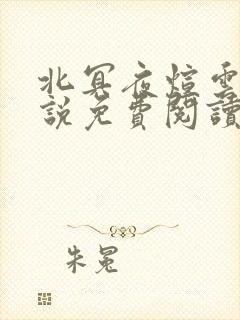 北冥夜煊雲
說免費閱讀
朱冕